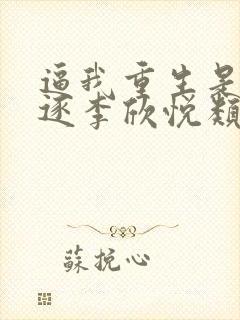 逼我重生是
逐李欣悦类
蘇挽心